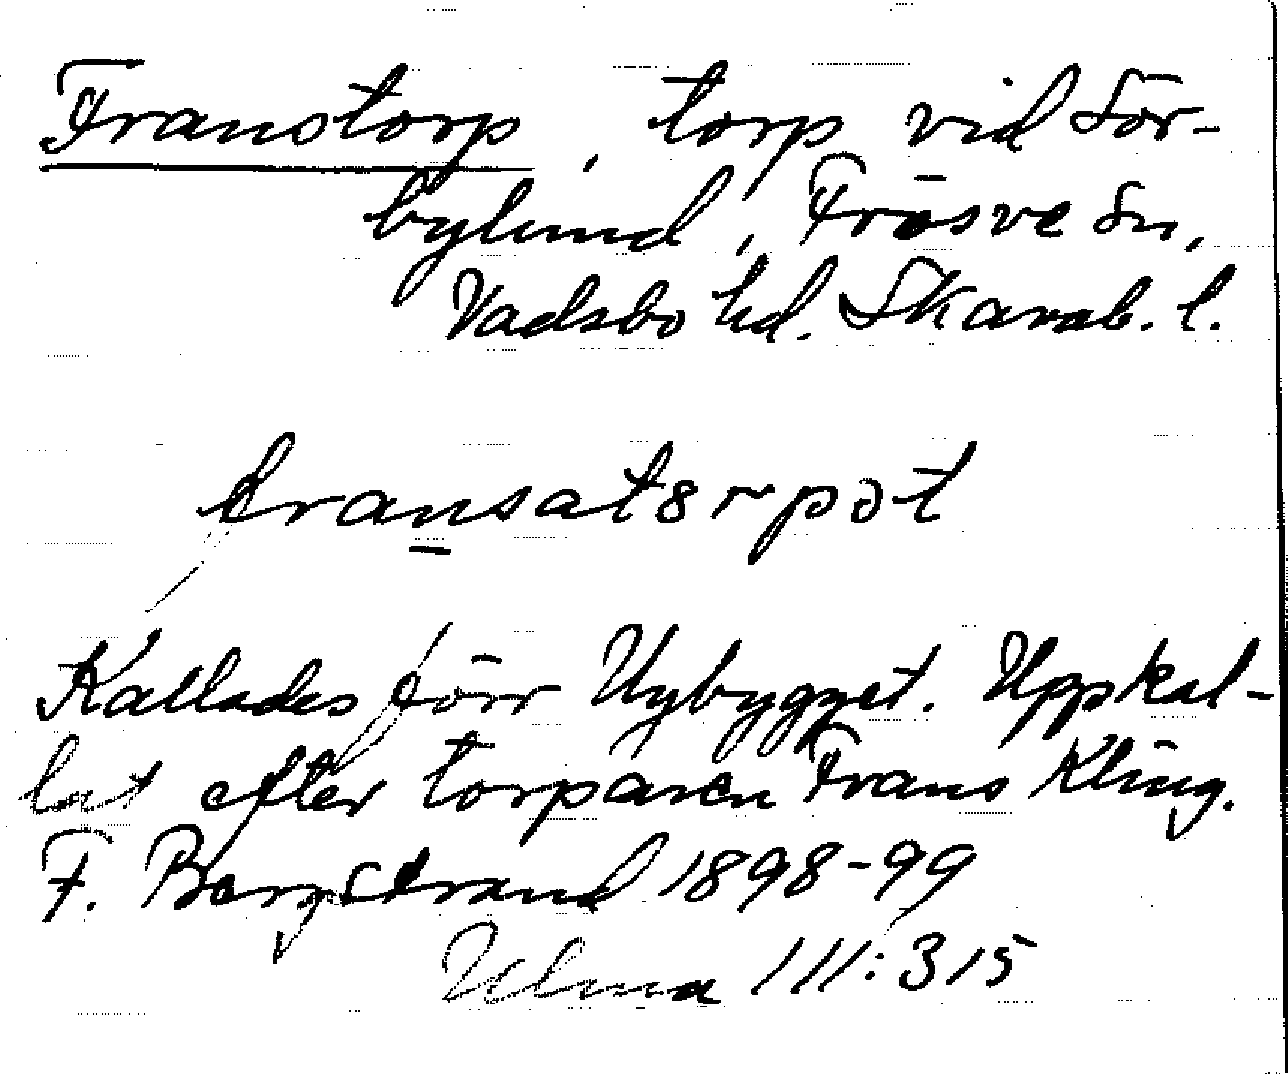 Franstorp, torp vid Sör-
bylund, Fräsve sn,
Vadsbo hd. Skarab. l.
fransatɔrpət
Kallades förr Nybygget. Uppkal-
lat efter torparen Frans Kling.
F. Bergstrand 1898-99
Ulma 111:315